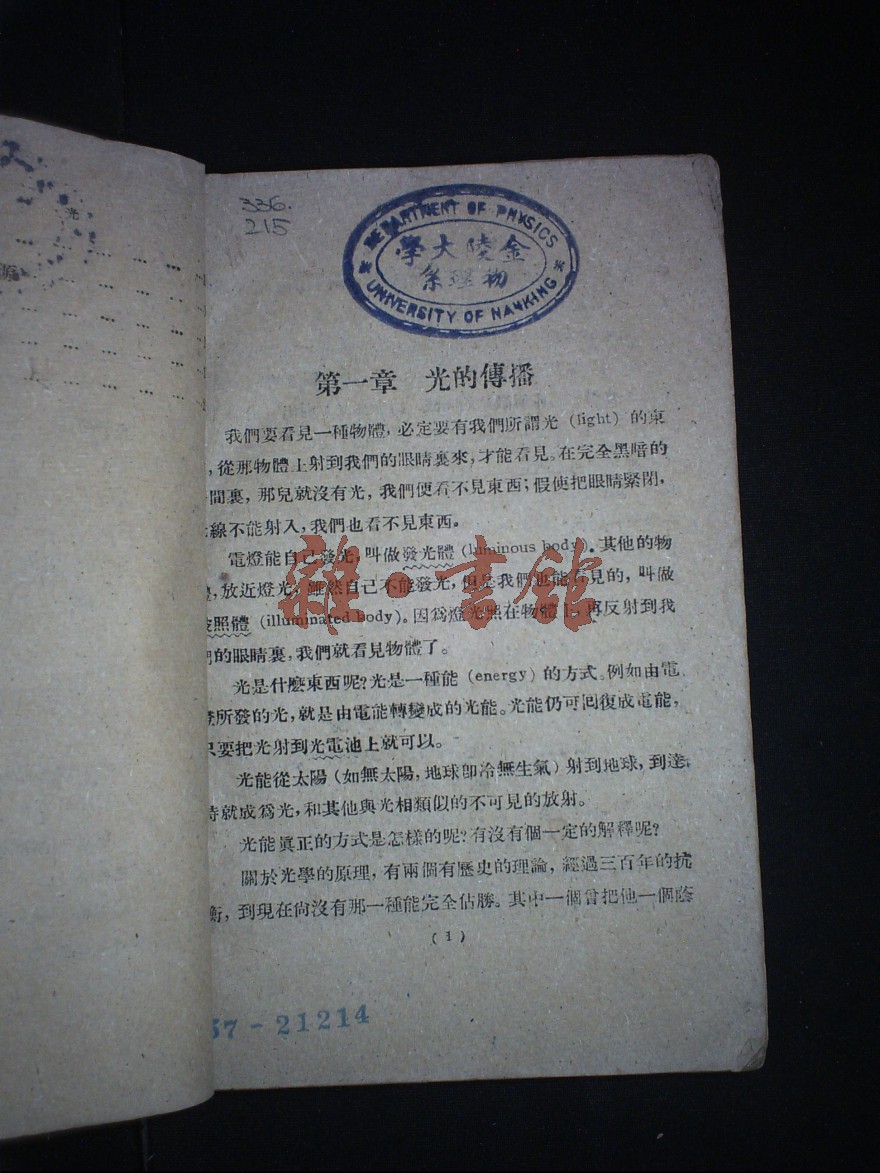 336.
215
DEPARTMENT OF PHYSICS
學大陵金
系理物
UNIVERSITY OF NANKING
第一章 光的傳播
我們要看見一種物體，必定要有我們所謂光 (light) 的東
，從那物體上射到我們的眼睛裏來，才能看見。在完全黑暗的
間裏，那兒就沒有光，我們便看不見東西；假使把眼睛緊閉，
線不能射入，我們也看不見東西。
電燈能自己發光，叫做發光體 (luminous body)。其他的物
，放近燈光，雖然自己不能發光，但是我們也能看見的，叫做
被照體 (illuminated body)。因爲燈光照在物體上，再反射到我
們的眼睛裏，我們就看見物體了。
光是什麽東西呢？光是一種能 (energy) 的方式。例如由電
燈所發的光，就是由電能轉變成的光能。光能仍可回復成電能，
只要把光射到光電池上就可以。
光能從太陽（如無太陽，地球卽冷無生氣）射到地球，到達
時就成爲光，和其他與光相類似的不可見的放射。
光能眞正的方式是怎樣的呢？有沒有個一定的解釋呢？
關於光學的原理，有兩個有歷史的理論，經過三百年的抗
衡，到現在尙沒有那一種能完全佔勝。其中一個曾把他一個蔭
(1)
57-21214
雜·書館
光
源